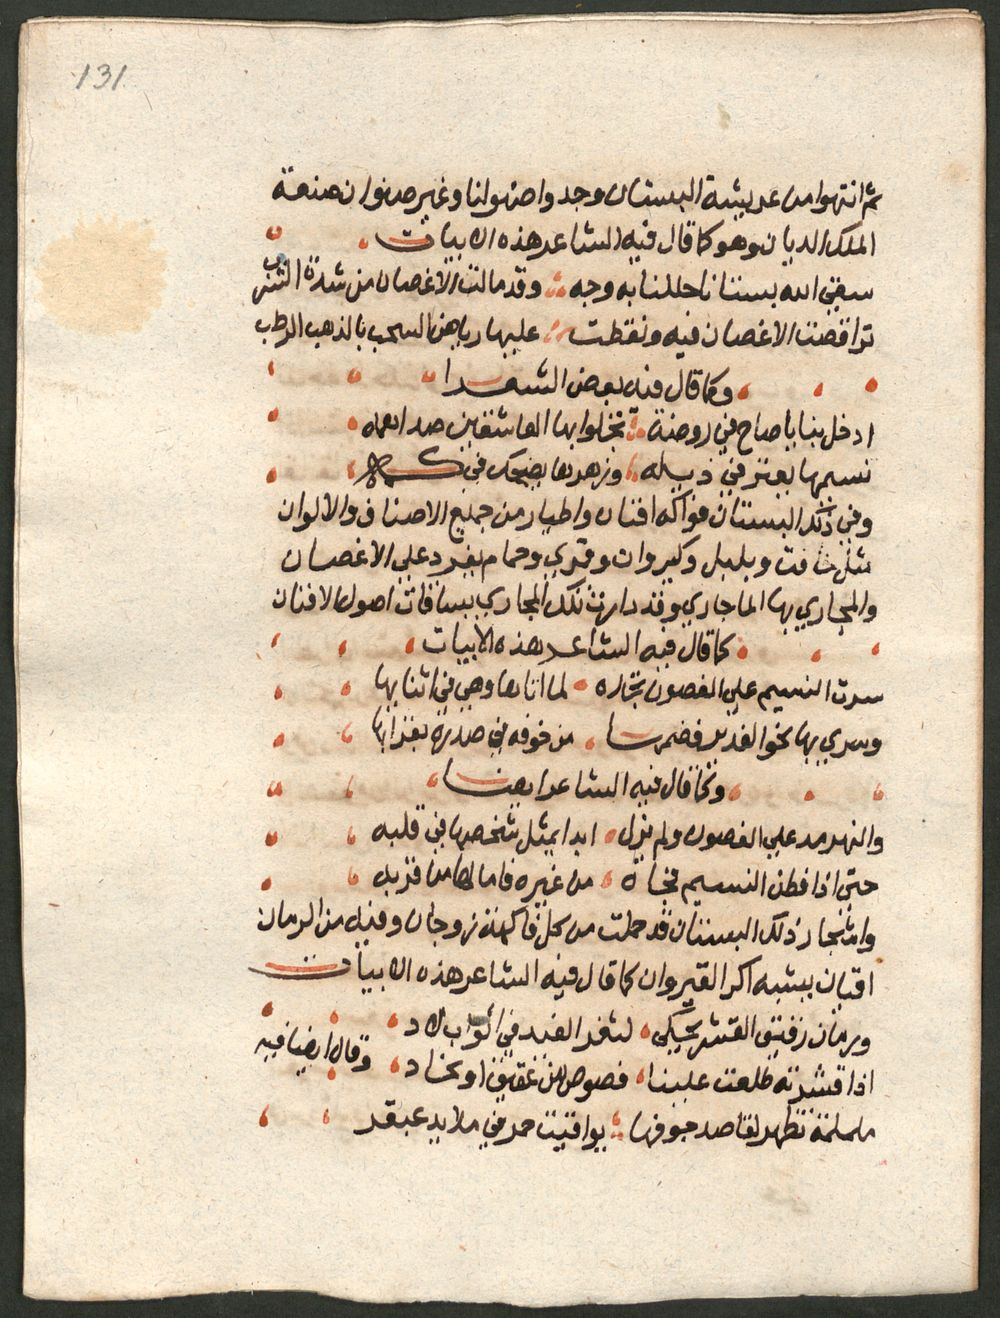 131
ثم انتهوا من عريشة البستان وجدوا صنوانا وغير صنوان صنعة
الملك الديان وهو كما قال فيه الشاعر هذه الابيات
سقي الله بستانا حللنا به وجه وقد مالت الاغصان من شدة الشرب
تراقصت الاغصان فيه ونقطت عليها رياض السحب بالذهب الرطب
وكما قال فيه بعض الشعرا
ادخل بنا يا صاح في روضة تجلوا بها العاشقين صدا همه
نسيمها يعثر في ذيله وزهرها يضحك في كمه
وفي ذلك البستان فواكه افنان واطيار من جميع الاصناف والالوان
مثل فاخت وبلبل وكيروان وقمري وحمام يغرد علي الاغصان
والمجاري بها الما جاري وقد دارت تلك المجاري بساقات اصول الافنان
كما قال فيه الشاعر هذه الابيات
سرت النسيم علي الغصون بتجاره لما اتاها وهي في اثنايها
وسري بها نحو الغدير فضمها من خوفه في صدره بفدايها
وكما قال فيه الشاعر ايضا
والنهر مد علي الغصون ولم يزل ابدا يمثل شخصها في قلبه
حتي اذا فطن النسيم فجاه من غيره فامالها من قربه
واشجار ذلك البستان قد حملت من كل فاكهة زوجان وفيه من الرمان
افنان يشبه اكر القيروان كما قال فيه الشاعر هذه الابيات
ورمان رقيق القشر يحكي لثغر الغيد في اثواب لاد
اذا قشرته طلعت علينا فصوص من عقيق او بجاد وقال ايضا فيه
ململمة تظهر لقاصد جوفها يواقيت حمر في ملايد عبقر